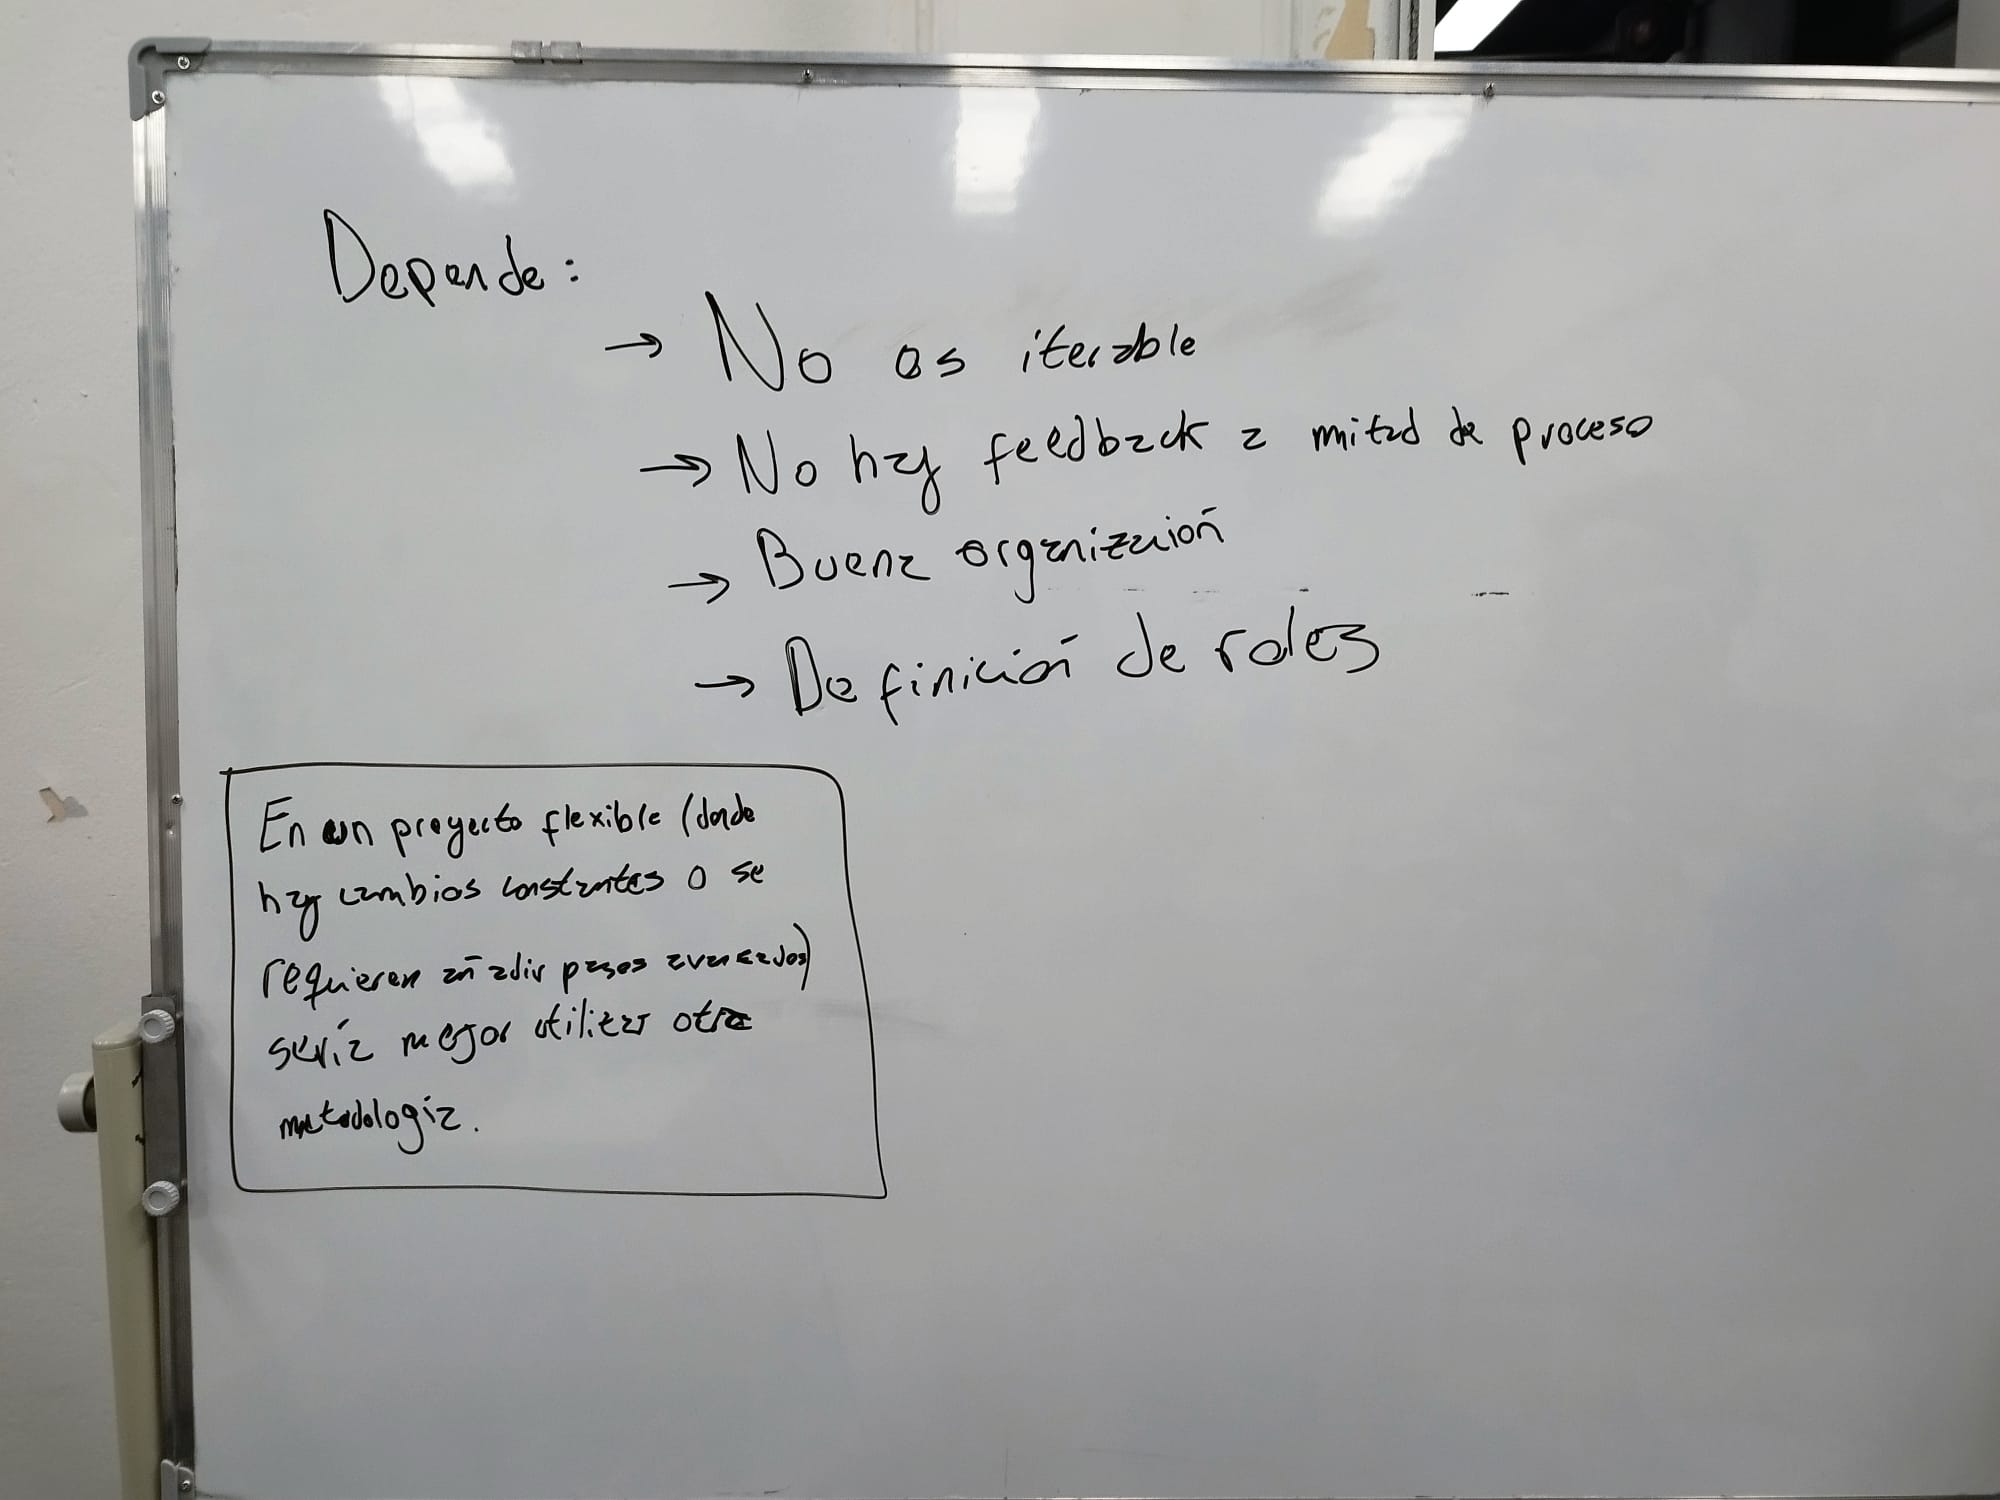 Depende:
→ No es iterable
→ No hay feedback a mitad de proceso
→ Buena organización
→ Definición de roles
En un proyecto flexible (donde
hay cambios constantes o se
requieren añadir pasos avanzados)
sería mejor utilizar otra
metodología.